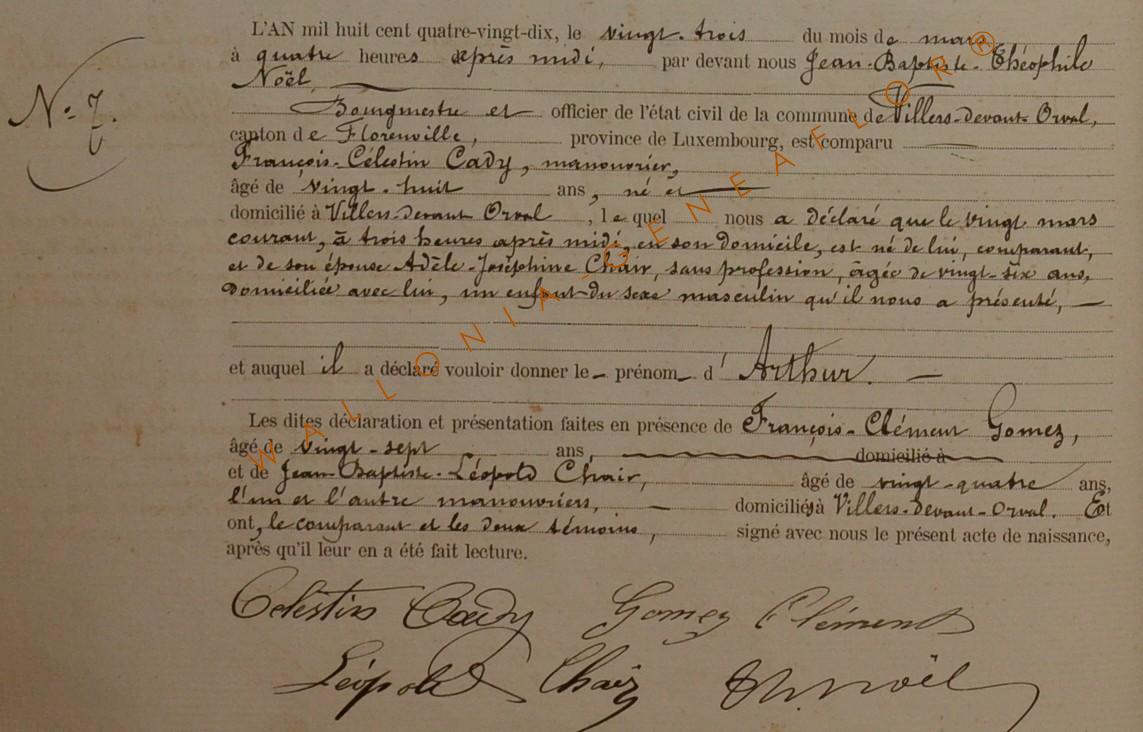 L'AN mil huit cent quatre-vingt-dix, le vingt-trois du mois de mars
à quatre heures après midi, par devant nous Jean-Baptiste-Théophile
Noël,
Bourgmestre et officier de l'état civil de la commune de Villers-devant-Orval,
canton de Florenville, province de Luxembourg, est comparu
N° 7.
François-Célestin Cady, manouvrier,
âgé de vingt-huit ans, né et
domicilié à Villers-devant-Orval, lequel nous a déclaré que le vingt mars
courant, à trois heures après midi, en son domicile, est né de lui, comparant,
et de son épouse Adèle-Joséphine Chair, sans profession, âgée de vingt-six ans,
domiciliée avec lui, un enfant du sexe masculin qu'il nous a présenté, —
et auquel il a déclaré vouloir donner le prénom d'Arthur. —
Les dites déclaration et présentation faites en présence de François-Clément Gomez,
âgé de vingt-sept ans, domicilié à
et de Jean-Baptiste-Léopold Chair, âgé de vingt-quatre ans,
l'un et l'autre manouvriers, — domiciliés à Villers-devant-Orval. Et
ont, le comparant et les deux témoins, signé avec nous le présent acte de naissance,
après qu'il leur en a été fait lecture.
Célestin Cady Gomez Clément
Léopold Chair Th. Noël
WALLONIA GENEAFLOR®